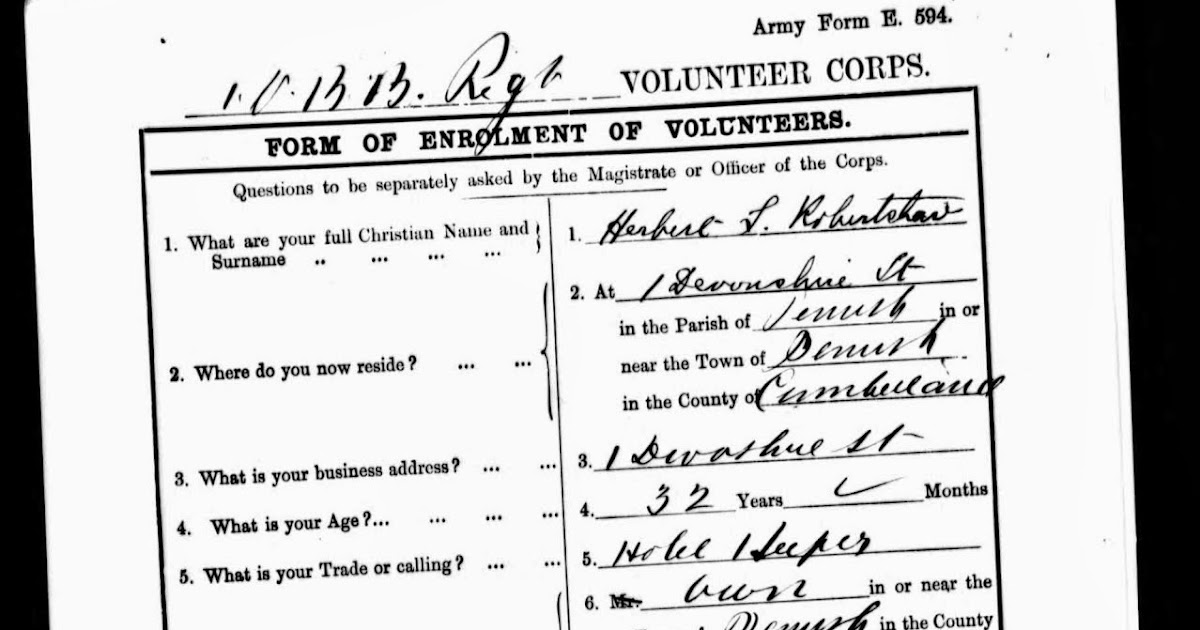 Army Form E. 594.
Regt VOLUNTEER CORPS.
FORM OF ENROLMENT OF VOLUNTEERS.
Questions to be separately asked by the Magistrate or Officer of the Corps.
1. What are your full Christian Name and Surname .. ... ... ...
1. Herbert L. Robertshaw
2. Where do you now reside? ... ...
2. At 1 Devonshire St
in the Parish of Penrith in or
near the Town of Penrith
in the County of Cumberland
3. What is your business address? ... ...
3. 1 Devonshire St
4. What is your Age?... ... ... ...
4. 32 Years Months
5. What is your Trade or calling? ... ...
5. Hotel Keeper
6. Mr. own in or near the
Penrith in the County